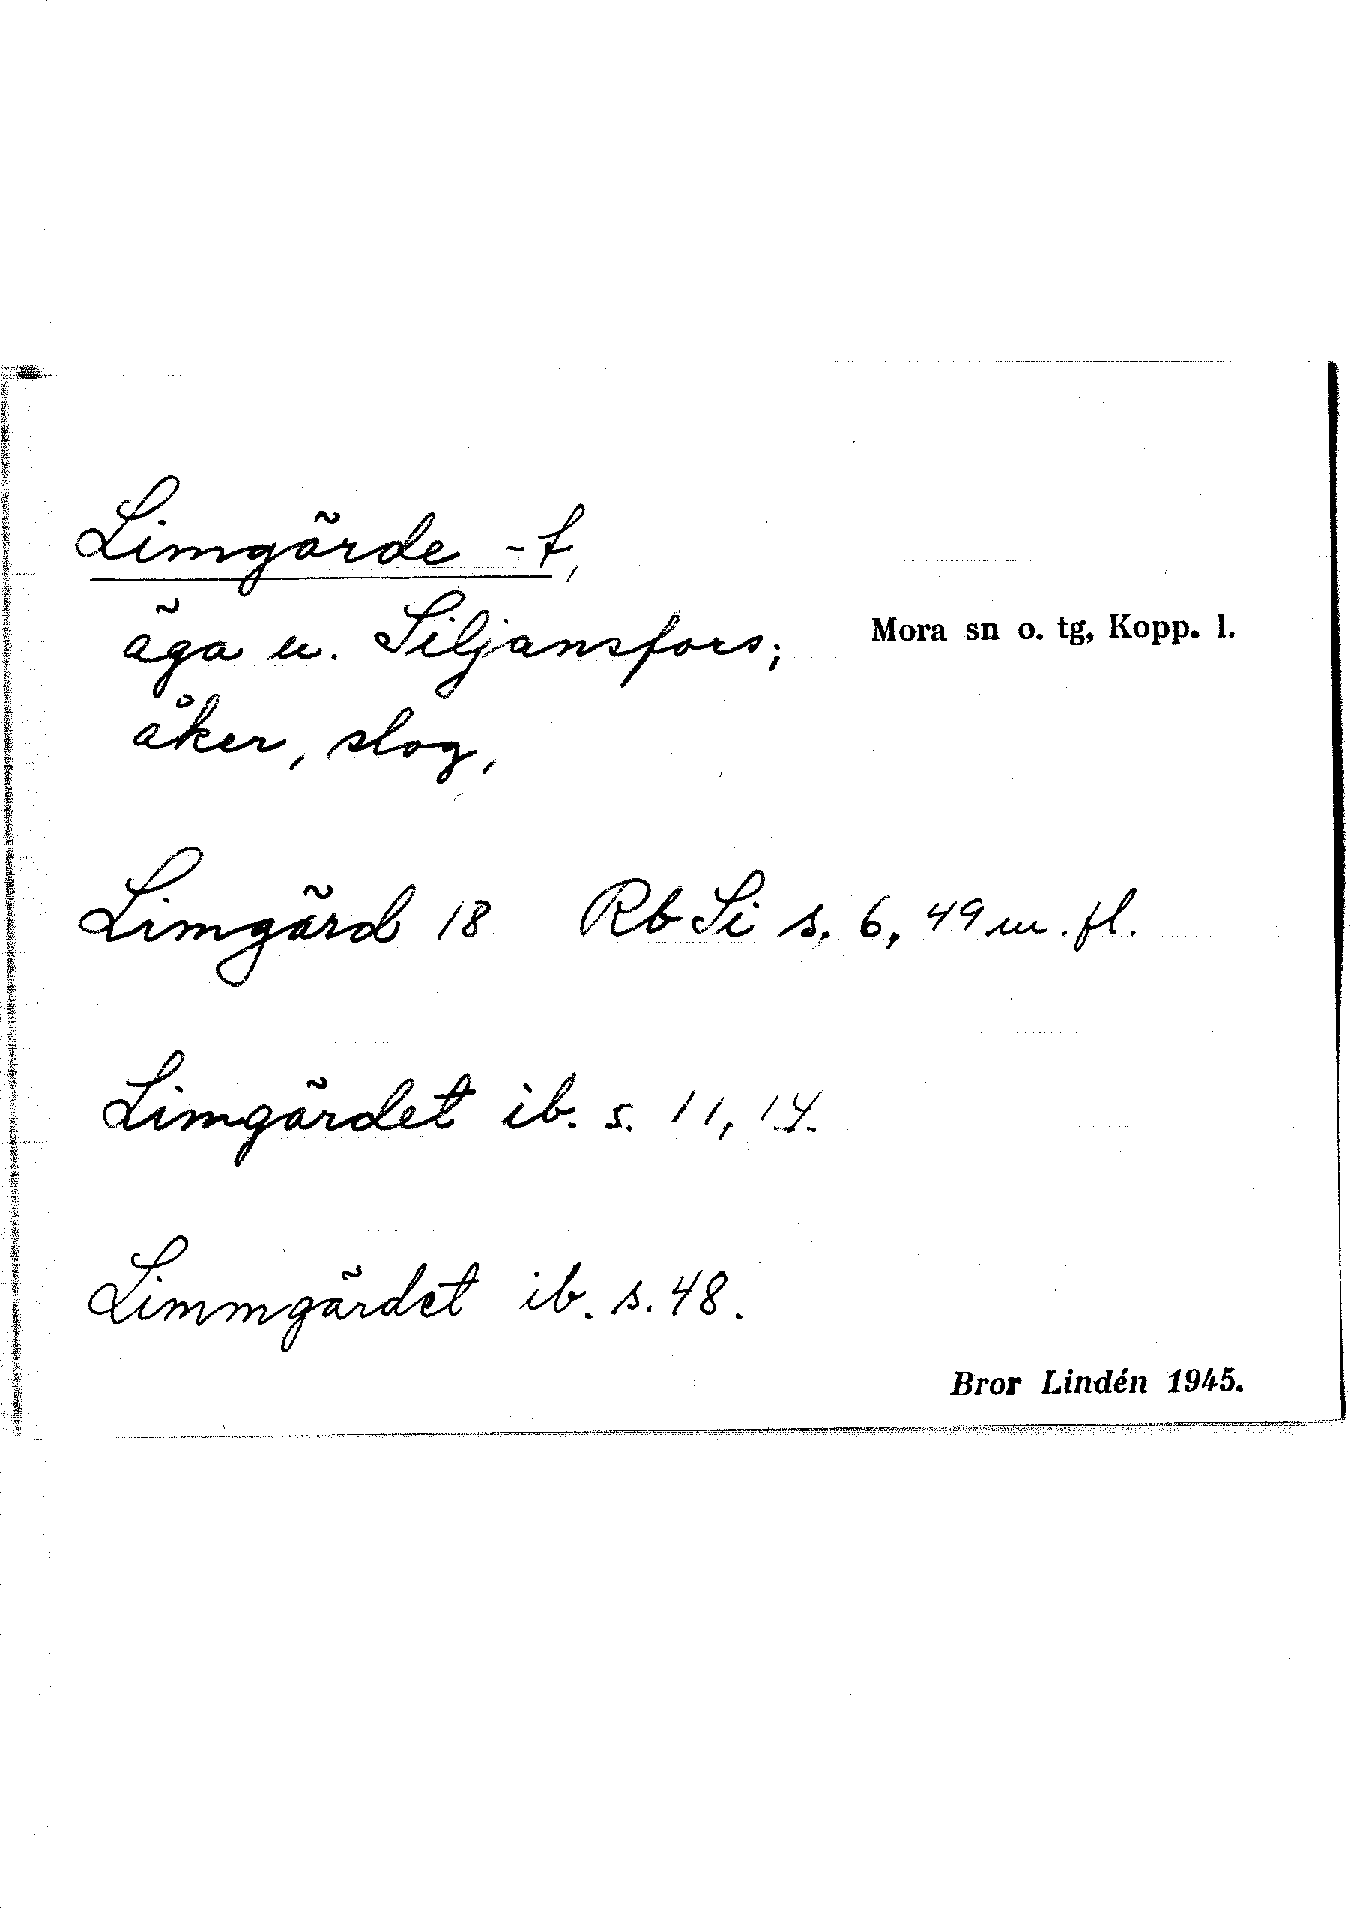 Limgärde -t,
äga u. Siljansfors;
Mora sn o. tg, Kopp. l.
åker, slog,
Limgärd 18 Rb Si s. 6, 49 m. fl.
Limgärdet ib. s. 11, 14.
Limmgärdet ib. s. 48.
Bror Lindén 1945.